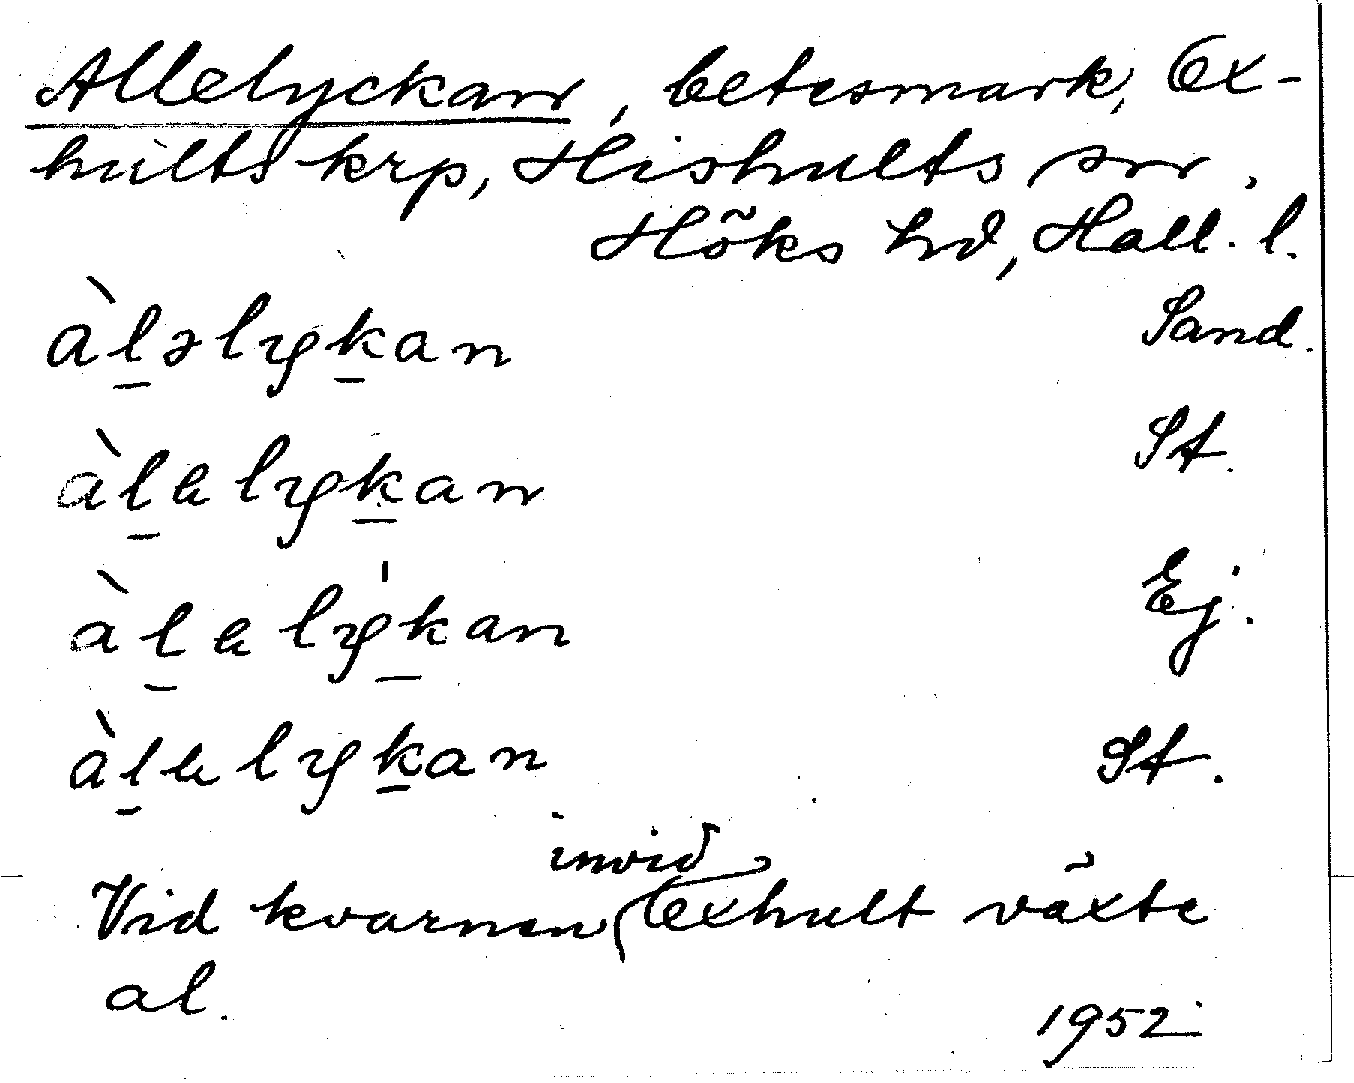 Allelyckan, betesmark, Ex-
hults krp, Hishults sn,
Höks hd, Hall. l.
àl̲əlyk̲an Sand.
àl̲alyk̲an St.
àl̲alyk̲an Ej.
àl̲alyk̲an St.
Vid kvarnen invid Exhult växte
al.
1952